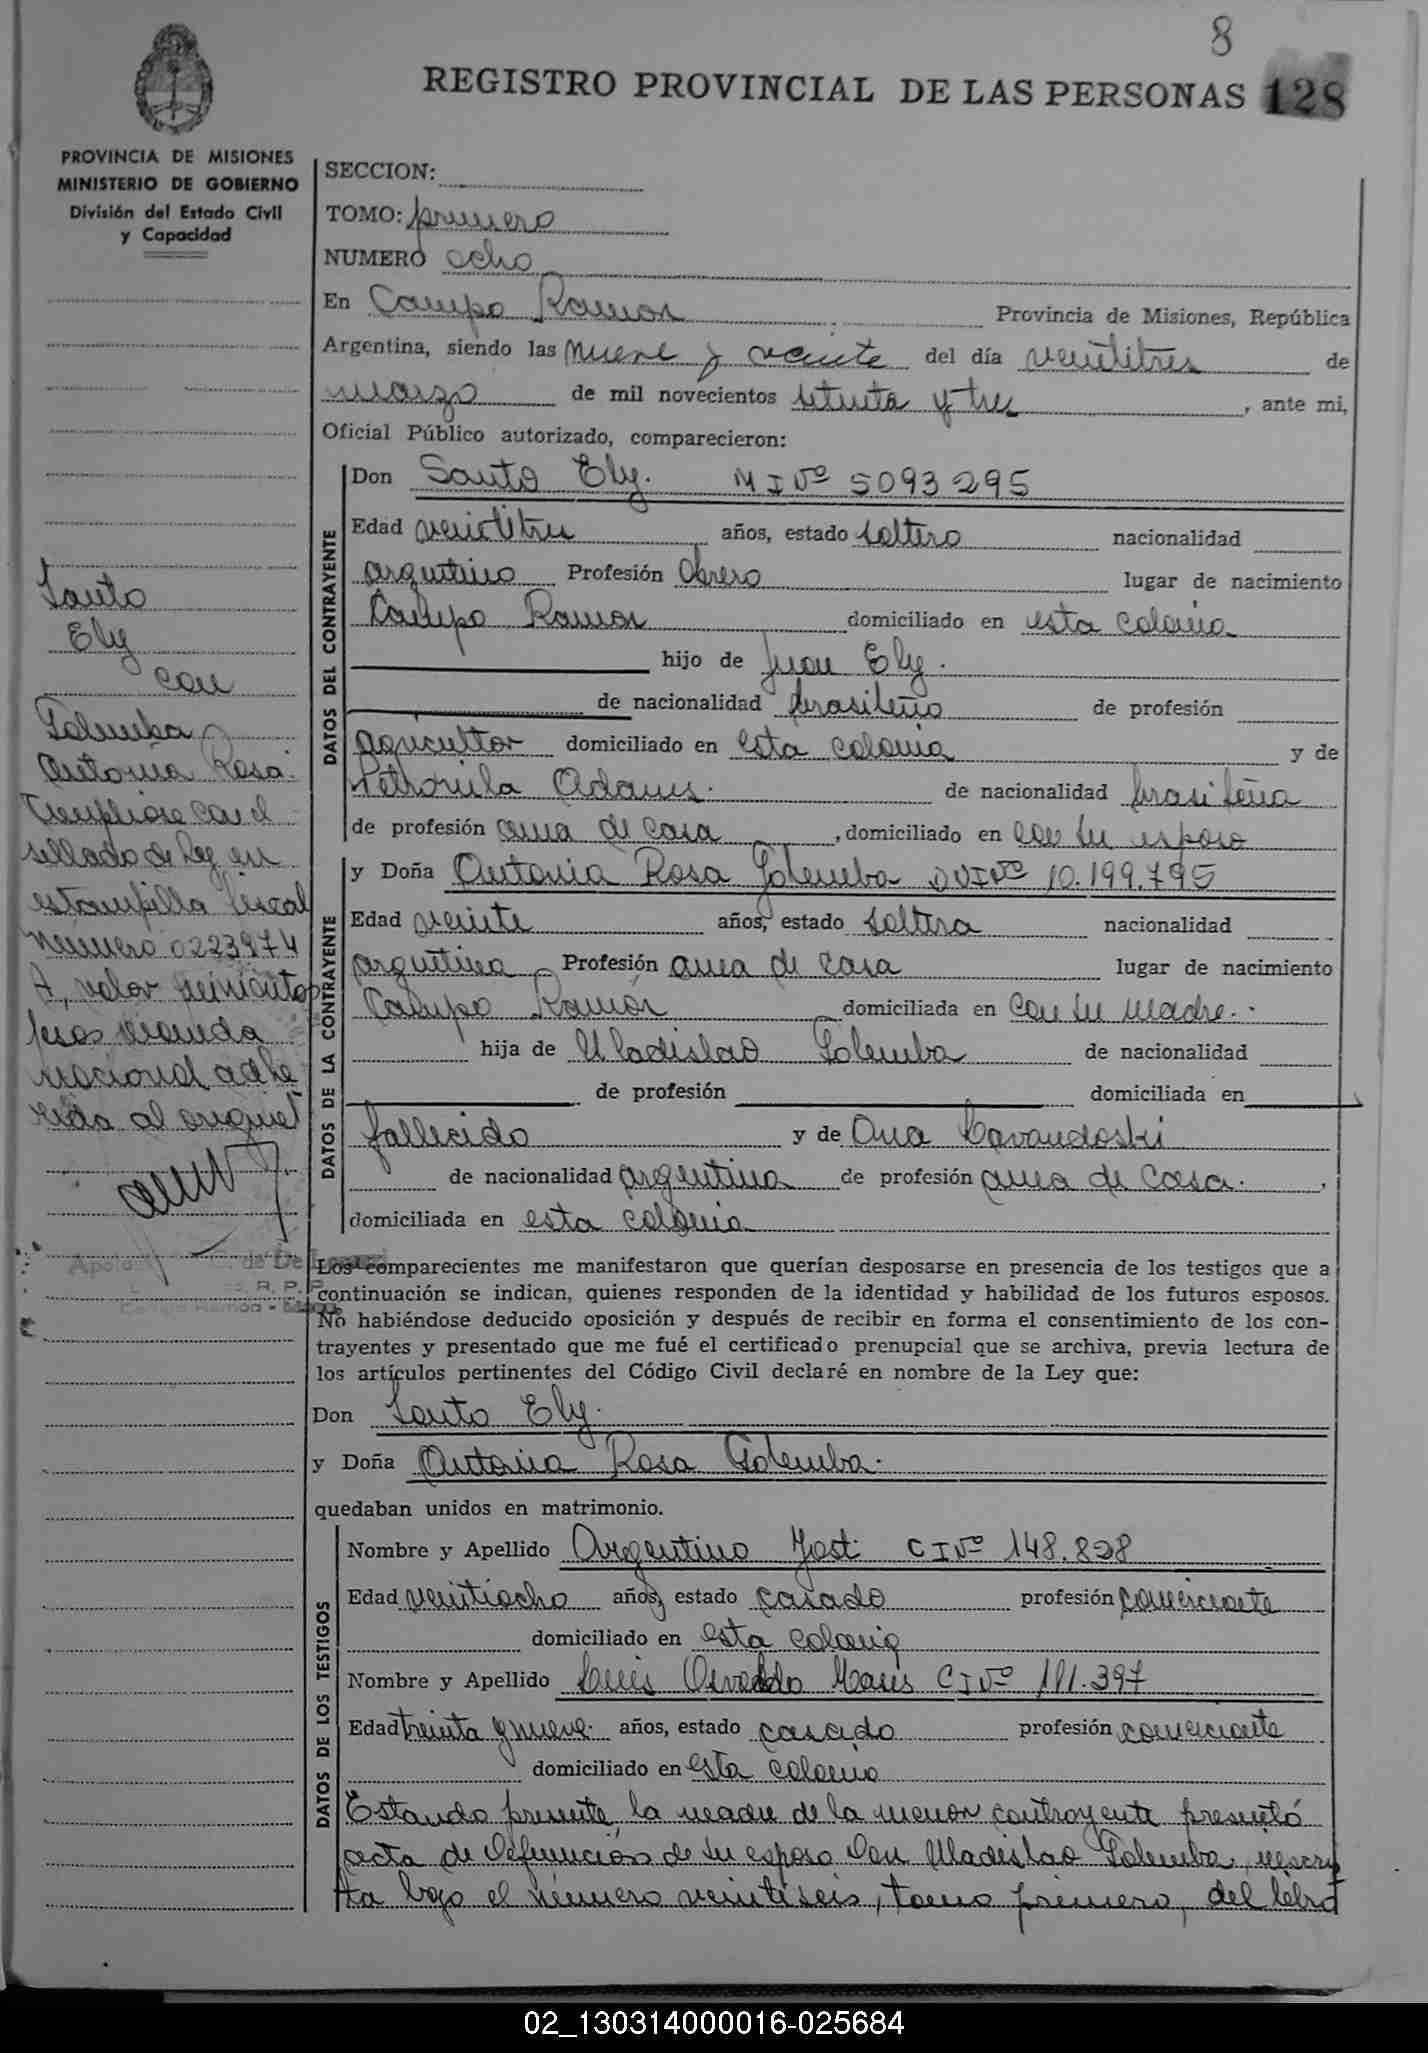 8
REGISTRO PROVINCIAL DE LAS PERSONAS 128
PROVINCIA DE MISIONES
MINISTERIO DE GOBIERNO
División del Estado Civil
y Capacidad
SECCION:
TOMO: primero
NUMERO ocho
En Campo Ramon Provincia de Misiones, República
Argentina, siendo las nueve y veinte del día veintitres de
marzo de mil novecientos setenta y tres, ante mi,
Oficial Público autorizado, comparecieron:
DATOS DEL CONTRAYENTE
Don Santo Ely. M I Nº 5093295
Edad veintitres años, estado soltero nacionalidad
argentino Profesión Obrero lugar de nacimiento
Campo Ramon domiciliado en esta colonia
hijo de Juan Ely.
de nacionalidad brasileño de profesión
agricultor domiciliado en esta colonia y de
Petronila Adams. de nacionalidad brasileña
de profesión ama de casa, domiciliado en con su esposo
DATOS DE LA CONTRAYENTE
y Doña Antonia Rosa Golemba DNI Nº 10.199.795
Edad veinte años, estado soltera nacionalidad
argentina Profesión ama de casa lugar de nacimiento
Campo Ramón domiciliada en con su madre.
hija de Uladislao Golemba de nacionalidad
de profesión domiciliada en
fallecido y de Ana
de nacionalidad argentina de profesión ama de casa.,
domiciliada en esta colonia
Santo
Ely
con
Golemba
Antonia Rosa.
con el
sellado de ley en
estampilla fiscal
número 0223974
A, valor
pesos moneda
nacional adhe
rida al original
Los comparecientes me manifestaron que querían desposarse en presencia de los testigos que a
continuación se indican, quienes responden de la identidad y habilidad de los futuros esposos.
No habiéndose deducido oposición y después de recibir en forma el consentimiento de los con-
trayentes y presentado que me fué el certificado prenupcial que se archiva, previa lectura de
los artículos pertinentes del Código Civil declaré en nombre de la Ley que:
Don Santo Ely.
y Doña Antonia Rosa Golemba.
quedaban unidos en matrimonio.
DATOS DE LOS TESTIGOS
Nombre y Apellido Argentino Yost C I Nº 148.828
Edad veintiocho años, estado casado profesión comerciante
domiciliado en esta colonia
Nombre y Apellido Luis Osvaldo C I Nº 111.397
Edad treinta y nueve. años, estado casado profesión comerciante
domiciliado en esta colonia
Estando presente, la madre de la menor contrayente presentó
acta de defunción de su esposo Don Uladislao Golemba, inscrip
ta bajo el número veintiseis, tomo primero, del libro
02_130314000016-025684